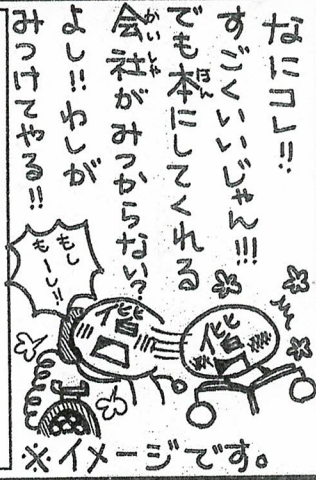 なにコレ!!
すごくいいじゃん!!!
でも本にしてくれる
会社がみつからない?
よし!!わしが
みつけてやる!!
もし
もーし!!
偕
偕
※イメージです。